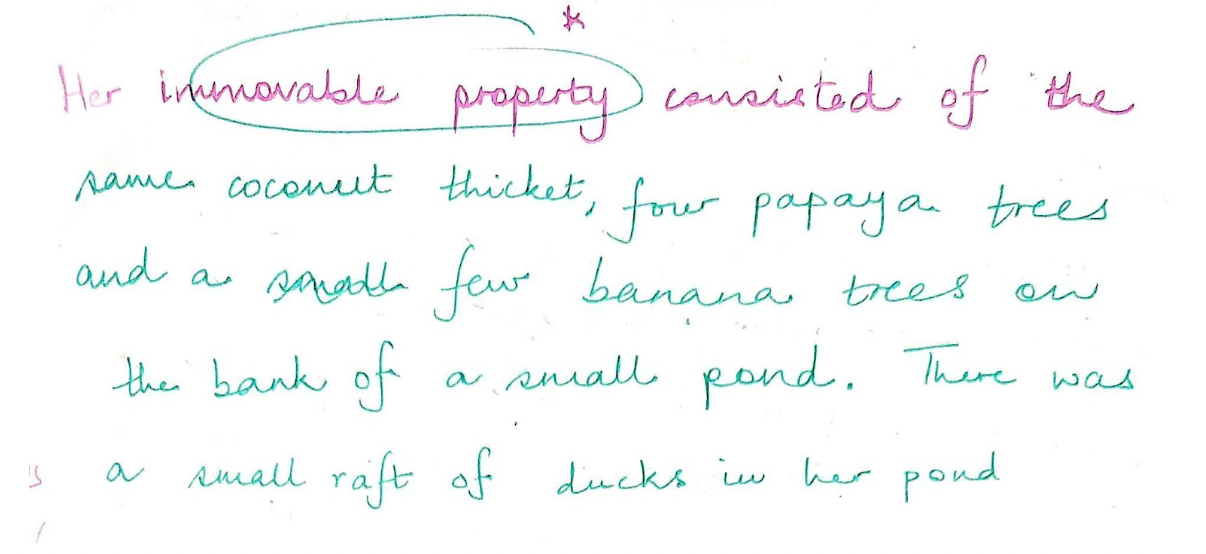 *
Her immovable property consisted of the
same coconut thicket, four papaya trees
and a small few banana trees on
the bank of a small pond. There was
a small raft of ducks in her pond